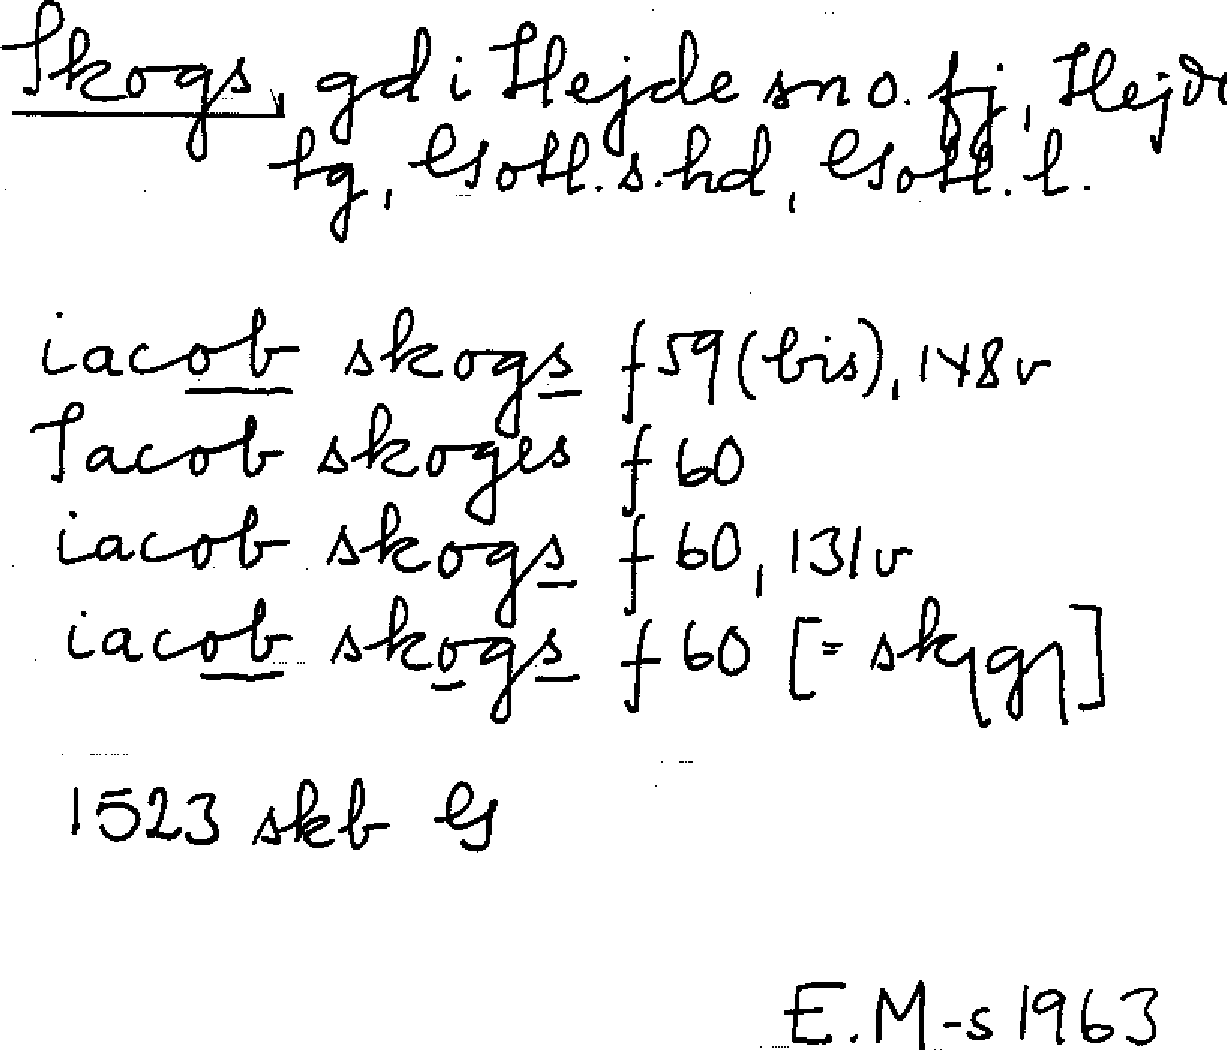 Skogs, gd i Hejde sn o. fj, Hejde
tg, Gotl. s. hd, Gotl. l.
iacob skogs f 59 (bis), 148v
Jacob skoges f 60
iacob skogs f 60, 131v
iacob skogs f 60 [=
1523 skb G
E. M-s 1963